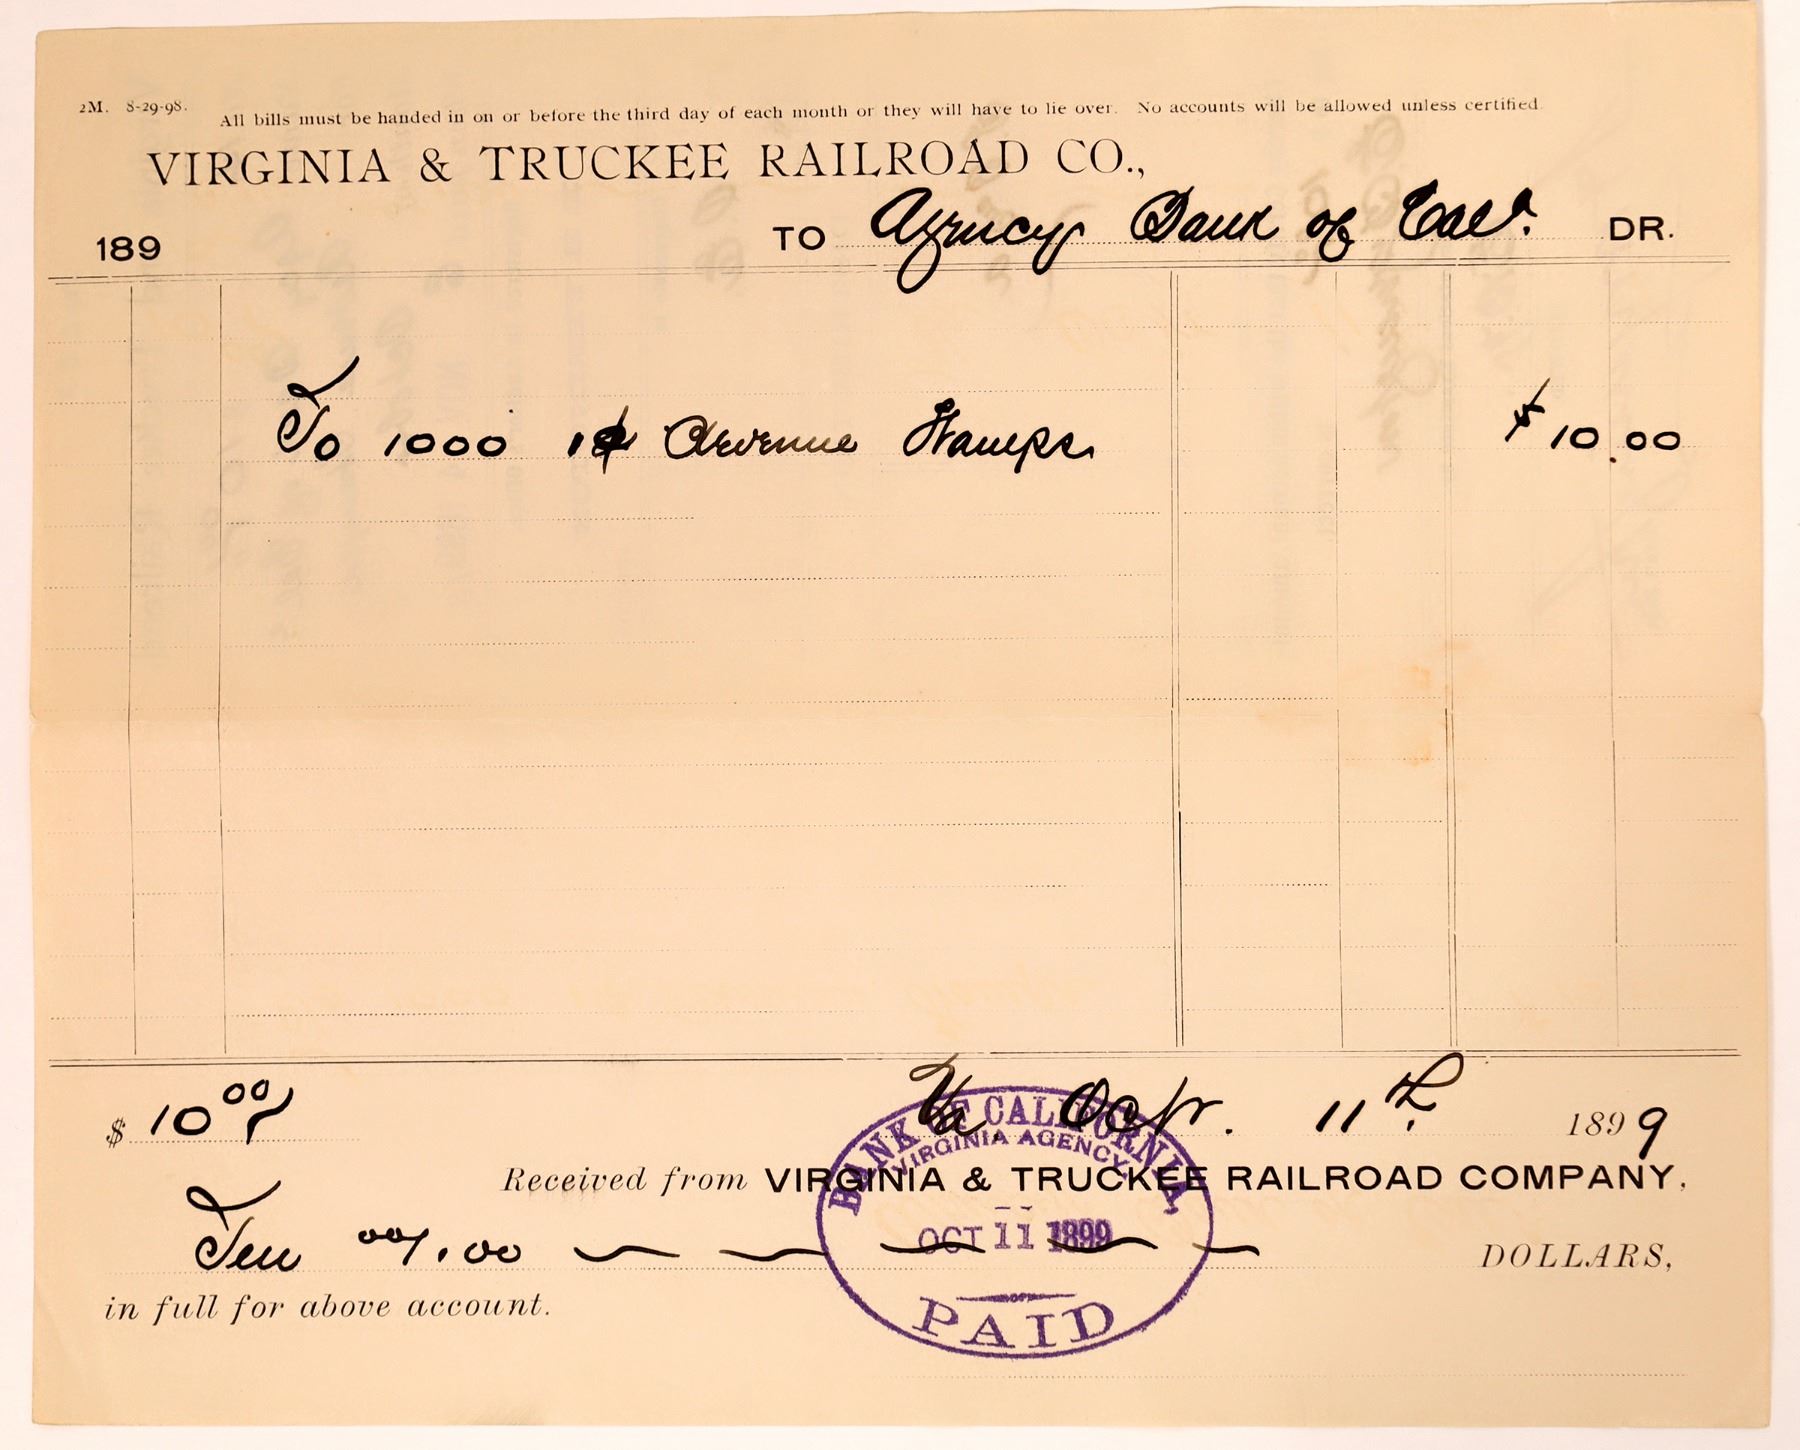 2M. 8-29-98.
All bills must be handed in on or before the third day of each month or they will have to lie over. No accounts will be allowed unless certified.
VIRGINIA & TRUCKEE RAILROAD CO.,
189 TO Agency Bank of Cal. DR.
To 1000 1¢ Revenue Stamps $10.00
$ 10 00/ Va Oct. 11th. 1899
Received from VIRGINIA & TRUCKEE RAILROAD COMPANY,
Ten 00/.00 DOLLARS,
in full for above account.
BANK OF CALIFORNIA,
VIRGINIA AGENCY,
OCT 11 1899
PAID